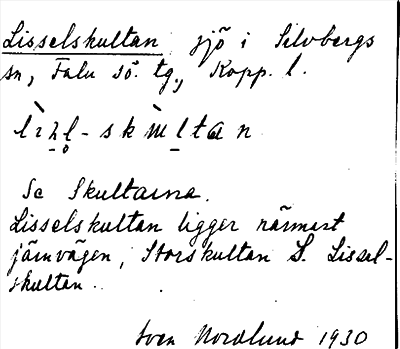 Lisselskultan sjö i Silvbergs
sn, Falu sö. tg., Kopp. l.
Se Skultarna.
Lisselskultan ligger närmast
järnvägen, Storskultan S. Lissel-
skultan.
Sven Nordlund 1930